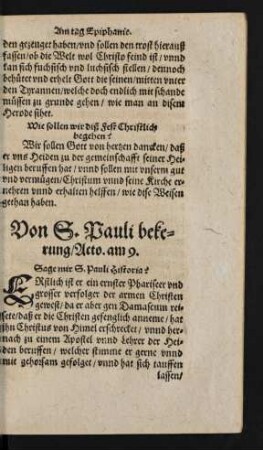 Am tag Epiphanie.
den gezeuget haben/vnd sollen den trost hierauß
fassen/ob die Welt wol Christo feind ist/vnnd
kan sich fuchsisch vnd luchsisch stellen/dennoch
behütet vnd erhelt Gott die seinen/mitten vnter
den Tyrannen/welche doch endlich mit schande
müssen zu grunde gehen/wie man an disem
Herode sihet.
Wie sollen wir diß Fest Christlich
begehen?
Wir sollen Gott von hertzen dancken/daß
er vns Heiden zu der gemeinschafft seiner Hei-
ligen beruffen hat/vnnd sollen mit vnserm gut
vnd vermügen/Christum vnnd seine Kirche er-
nehren vnnd erhalten helffen/wie dise Weisen
gethan haben.
Von S. Pauli beke-
rung/Acto. am 9.
Sage mir S. Pauli Historia?
ERstlich ist er ein ernster Phariseer vnd
grosser verfolger der armen Christen
gewest/da er aber gen Damascum rei-
sete/daß er die Christen gefenglich anneme/hat
ihn Christus von Himel erschrecket/vnnd her-
nach zu einem Apostel vnnd Lehrer der Hei-
den beruffen/welcher stimme er gerne vnnd
mit gehorsam gefolget/vnnd hat sich tauffen
lassen/